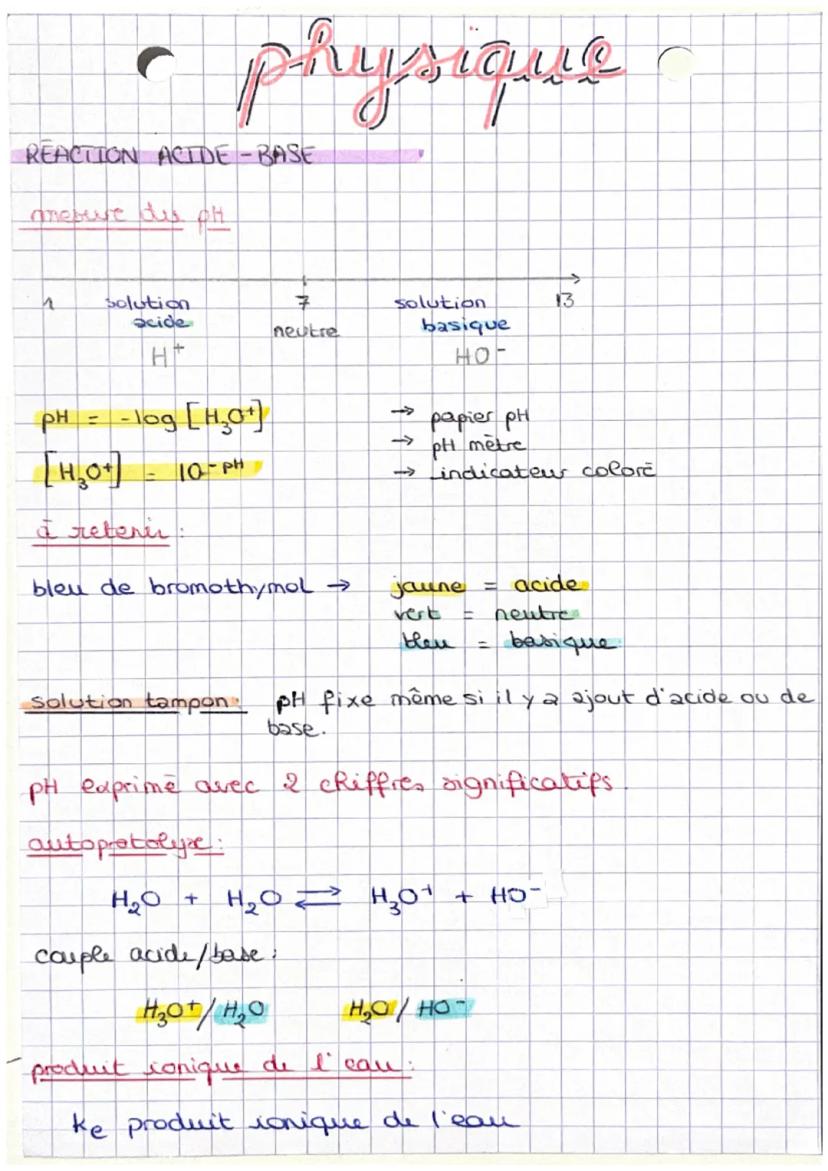 physique
RÉACTION ACIDE-BASE
mesure du pH
1 solution 7 solution 13
acide neutre basique
H⁺ HO⁻
pH = -log [H₃O⁺] → papier pH
→ pH mètre
[H₃O⁺] = 10⁻ᵖᴴ → indicateur coloré
à retenir :
bleu de bromothymol → jaune = acide
vert = neutre
bleu = basique
solution tampon: pH fixe même si il y a ajout d'acide ou de
base.
pH exprimé avec 2 chiffres significatifs.
autoprotolyse :
H₂O + H₂O ⇄ H₃O⁺ + HO⁻
couple acide/base :
H₃O⁺/H₂O H₂O/HO⁻
produit ionique de l'eau :
Ke produit ionique de l'eau